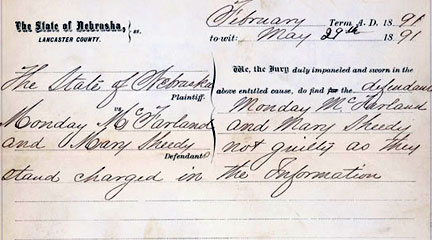 February Term A. D. 1891
The State of Nebraska, } ss.
LANCASTER COUNTY.
to-wit: May 29th 1891
The State of Nebraska
Plaintiff.
vs
Monday McFarland
and Mary Sheedy
Defendants
We, the Jury duly impaneled and sworn in the
above entitled cause, do find for the defendants
Monday McFarland
and Mary Sheedy
not guilty as they
stand charged in the Information